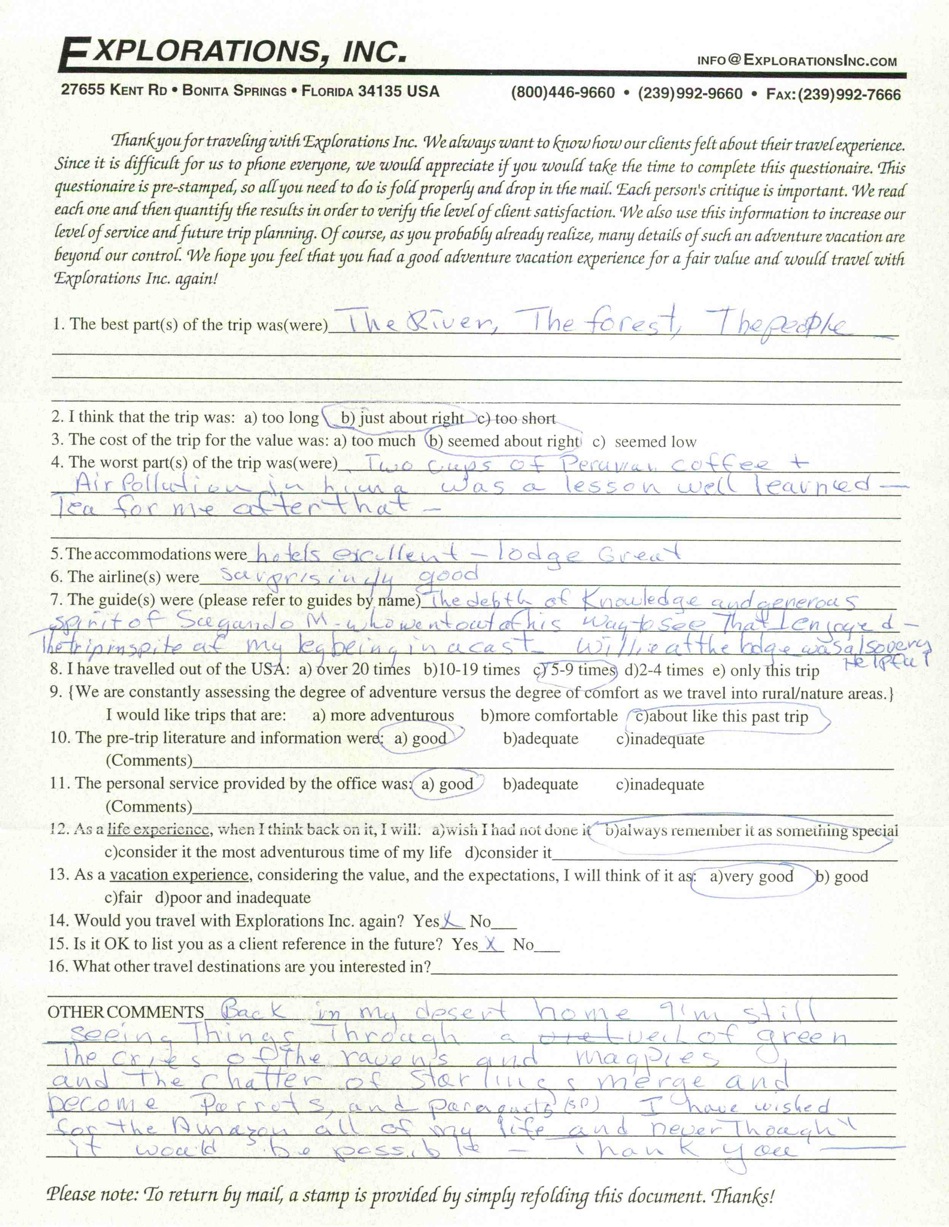 EXPLORATIONS, INC.
INFO@EXPLORATIONSINC.COM
27655 KENT RD • BONITA SPRINGS • FLORIDA 34135 USA (800)446-9660 • (239)992-9660 • FAX:(239)992-7666
Thank you for traveling with Explorations Inc. We always want to know how our clients felt about their travel experience.
Since it is difficult for us to phone everyone, we would appreciate if you would take the time to complete this questionaire. This
questionaire is pre-stamped, so all you need to do is fold properly and drop in the mail. Each person's critique is important. We read
each one and then quantify the results in order to verify the level of client satisfaction. We also use this information to increase our
level of service and future trip planning. Of course, as you probably already realize, many details of such an adventure vacation are
beyond our control. We hope you feel that you had a good adventure vacation experience for a fair value and would travel with
Explorations Inc. again!
1. The best part(s) of the trip was(were) The River, The forest, The people
2. I think that the trip was: a) too long b) just about right c) too short
3. The cost of the trip for the value was: a) too much b) seemed about right c) seemed low
4. The worst part(s) of the trip was(were) Two cups of Peruvian coffee +
Air Pollution in Lima was a lesson well learned —
Tea for me after that —
5. The accommodations were hotels excllent — lodge Great
6. The airline(s) were surprisingly good
7. The guide(s) were (please refer to guides by name) The depth of Knowledge and generous
spirit of Segundo M. who went out of his way to see That I enjoyed —
The trip in spite of my leg being in a cast. Willie at the lodge was also very
HelpFul
8. I have travelled out of the USA: a) over 20 times b)10-19 times c) 5-9 times d)2-4 times e) only this trip
9. {We are constantly assessing the degree of adventure versus the degree of comfort as we travel into rural/nature areas.}
I would like trips that are: a) more adventurous b)more comfortable c)about like this past trip
10. The pre-trip literature and information were: a) good b)adequate c)inadequate
(Comments)
11. The personal service provided by the office was: a) good b)adequate c)inadequate
(Comments)
12. As a life experience, when I think back on it, I will: a)wish I had not done it b)always remember it as something special
c)consider it the most adventurous time of my life d)consider it
13. As a vacation experience, considering the value, and the expectations, I will think of it as: a)very good b) good
c)fair d)poor and inadequate
14. Would you travel with Explorations Inc. again? Yes X No
15. Is it OK to list you as a client reference in the future? Yes X No
16. What other travel destinations are you interested in?
OTHER COMMENTS Back in my desert home I'm still
seeing Things Through a veil of green
The cries of the ravens and magpies
and the chatter of Starlings merge and
become Parrots, and paraquets (sp) I have wished
for the Amazon all of my life and never Thought
it would be possible — Thank you
Please note: To return by mail, a stamp is provided by simply refolding this document. Thanks!